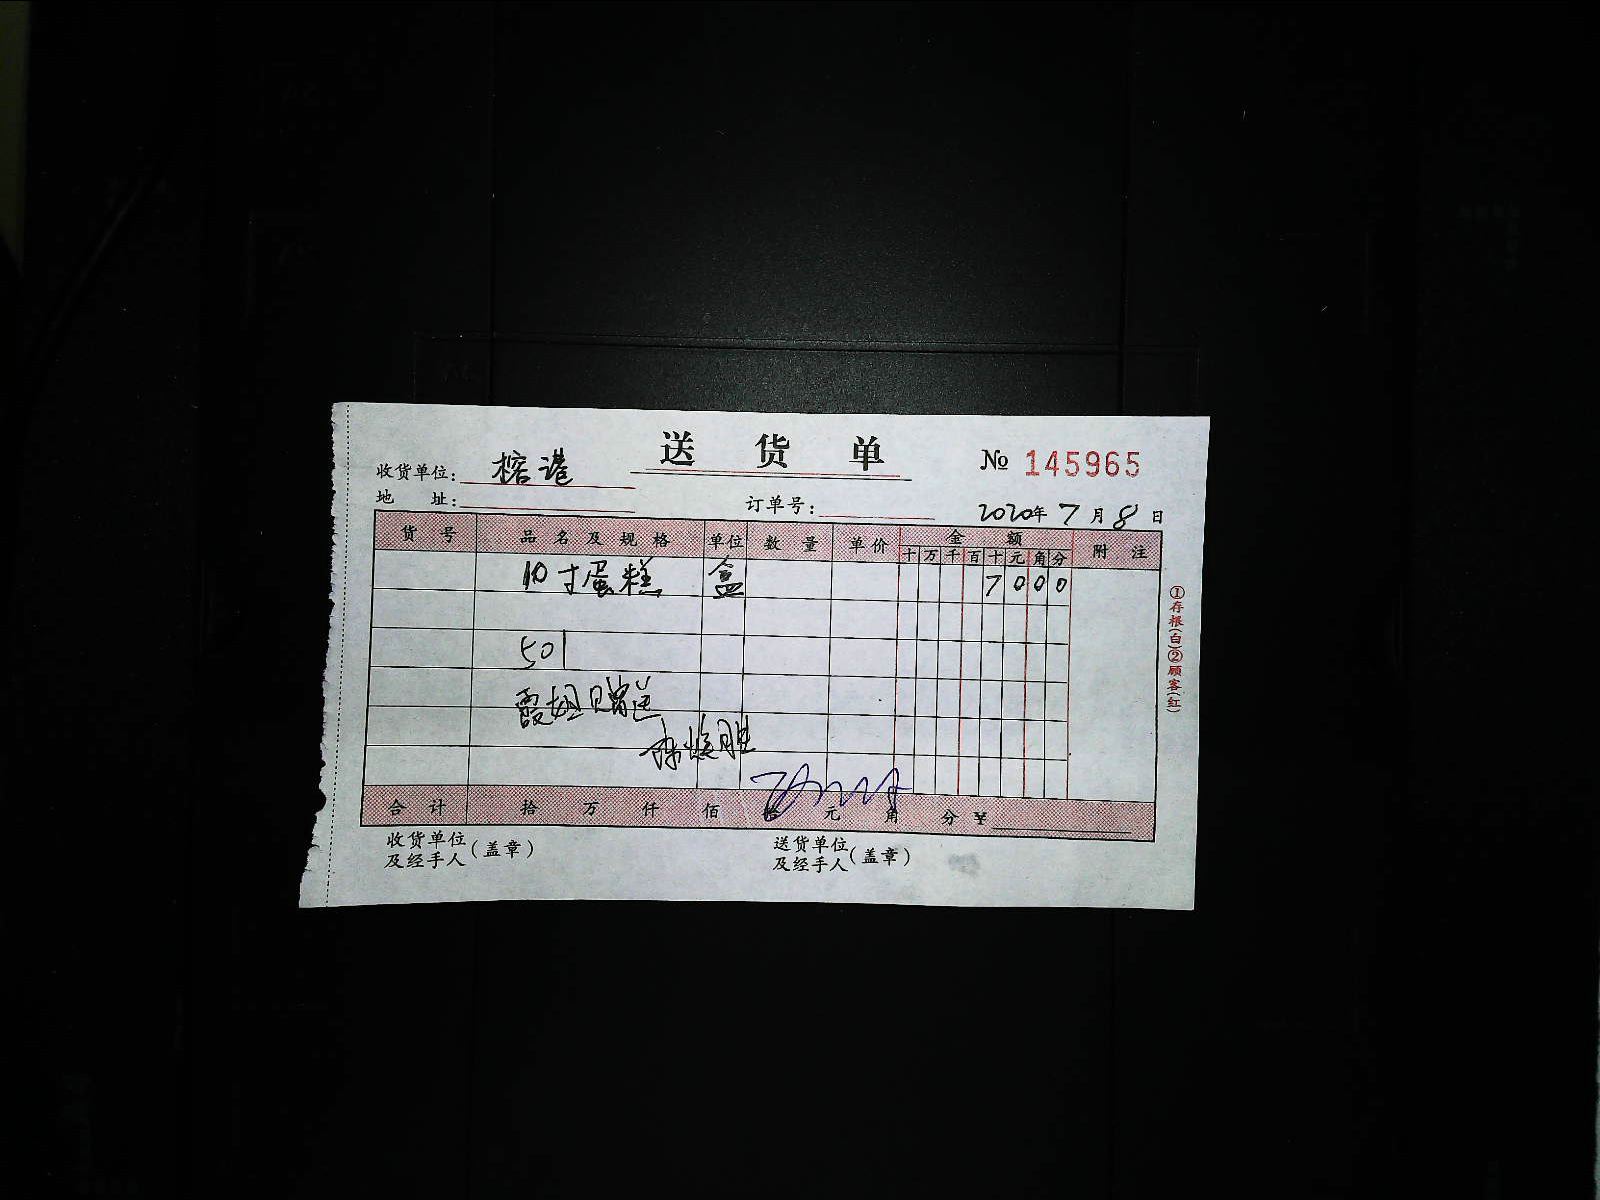 送货单
№ 145965
收货单位: 榕港
地址: 订单号: 2020年7月8日
货号 品名及规格 单位 数量 单价 金额 附注
十 万 千 百 十 元 角 分
10寸蛋糕 盒 7000
501
霞姐赠送
合计 拾 万 仟 佰 拾 元 角 分 ¥
收货单位及经手人(盖章) 送货单位及经手人(盖章)
①存根(白)②顾客(红)